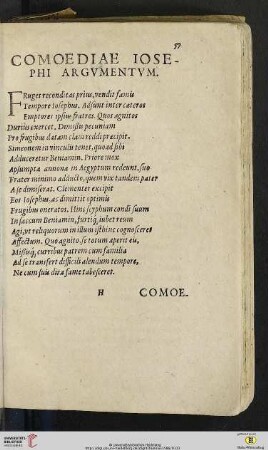 57
COMOEDIAE IOSE-
PHI ARGVMENTVM.
FRuges reconditas prius, vendit famis
Tempore Iosephus. Adsunt inter cæteros
Emptores ipsius fratres. Quos agnitos
Durius exercet. Demissis pecuniam
Pro frugibus datam clam reddi præcipit.
Simeonem in vinculis tenet, quo ad sibi
Adduceretur Beniamin. Priore mox
Absumpta annona in Aegyptum redeunt, suo
Fratre minimo adducto, quem vix tandem pater
A se dimiserat. Clementer excipit
Eos Iosephus, ac dimittit optimis
Frugibus oneratos. Hinc scyphum condi suum
In saccum Beniamin, furtiq; iubet reum
Agi, ut reliquorum in illum isthinc cognosceret
Affectum. Quo agnito, se totum aperit eis,
Missisq; curribus patrem cum familia
Ad se transfert difficili alendum tempore,
Ne cum suis dira fame tabesceret.
H COMOE-